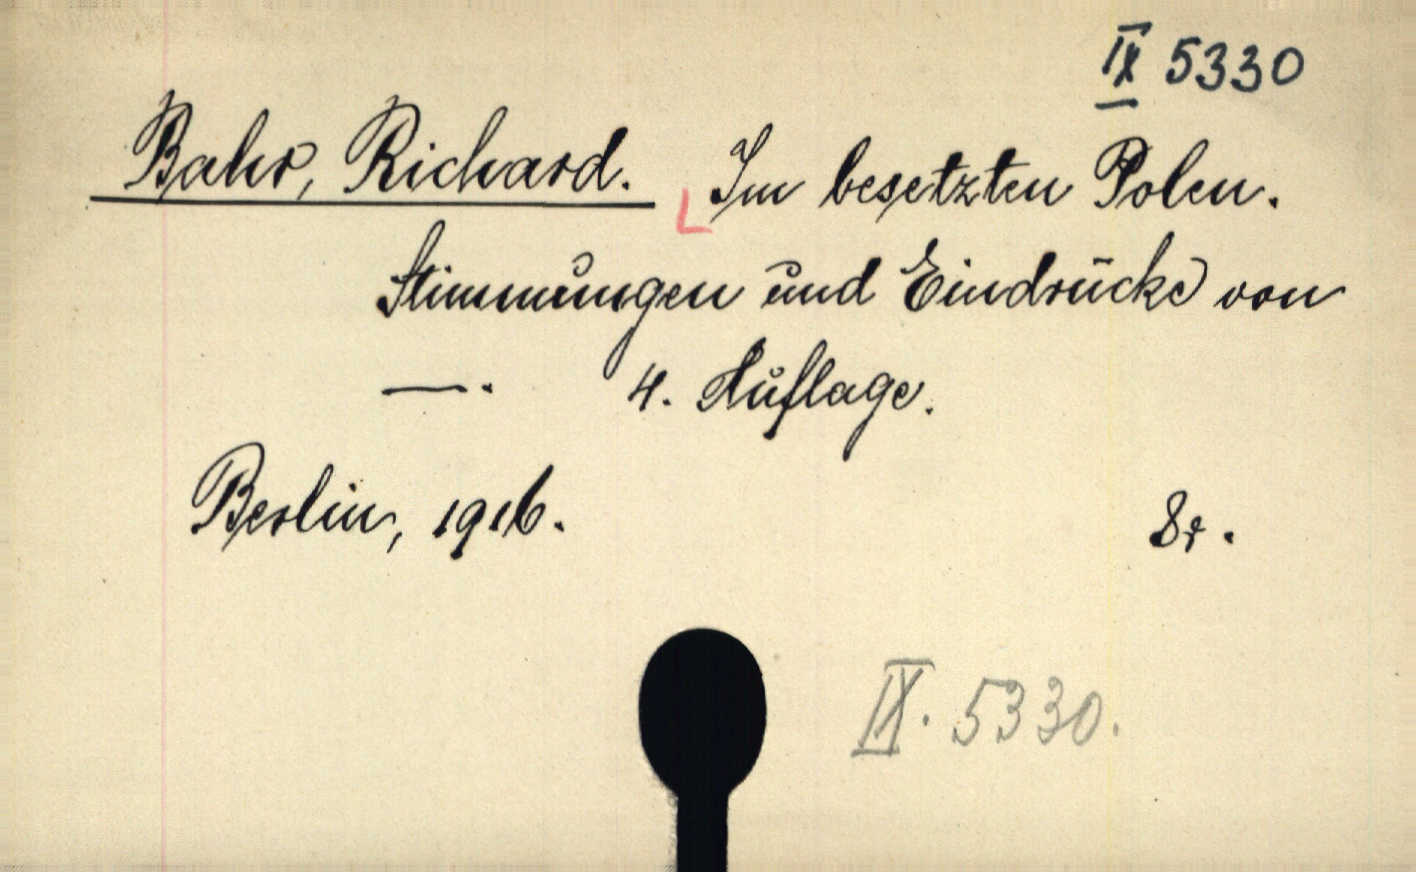 IX 5330
Bahr, Richard. Im besetzten Polen.
Stimmungen und Eindrücke von
—. 4. Auflage.
Berlin, 1916. 8º.
IX. 5330.